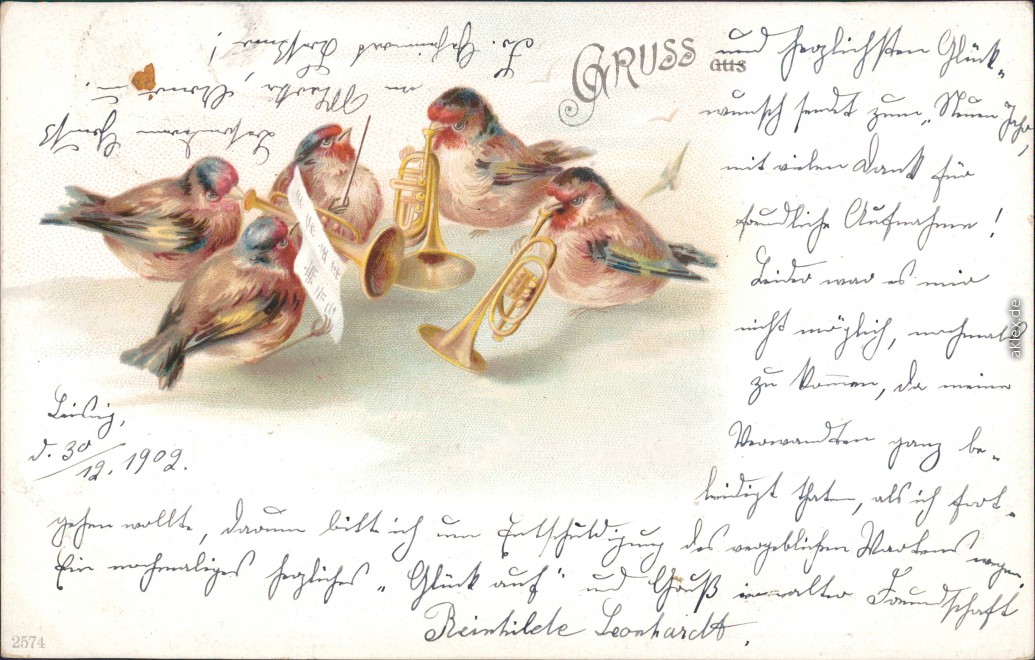 GRUSS aus
und herzlichsten Glück-
wunsch sendt zum „Neuen Jahr,
mit vielen Dank für
freudliche Aufnahme!
Leider war es mir
nicht möglich, nochmals
zu kommen, da meine
Verwandten ganz be-
leidigt thaten, als ich fort-
gehen wollte, darum bitt ich um Entschuldigung des vergeblichen Wartens wegen.
Ein nochmaliges herzliches „Glück auf“ und Gruß in alter Freundschaft
Reinhilde Leonhardt.
Leisnig,
d. 30/12. 1902.
Besonderen Gruß
an Martha,
2574
aklex.de